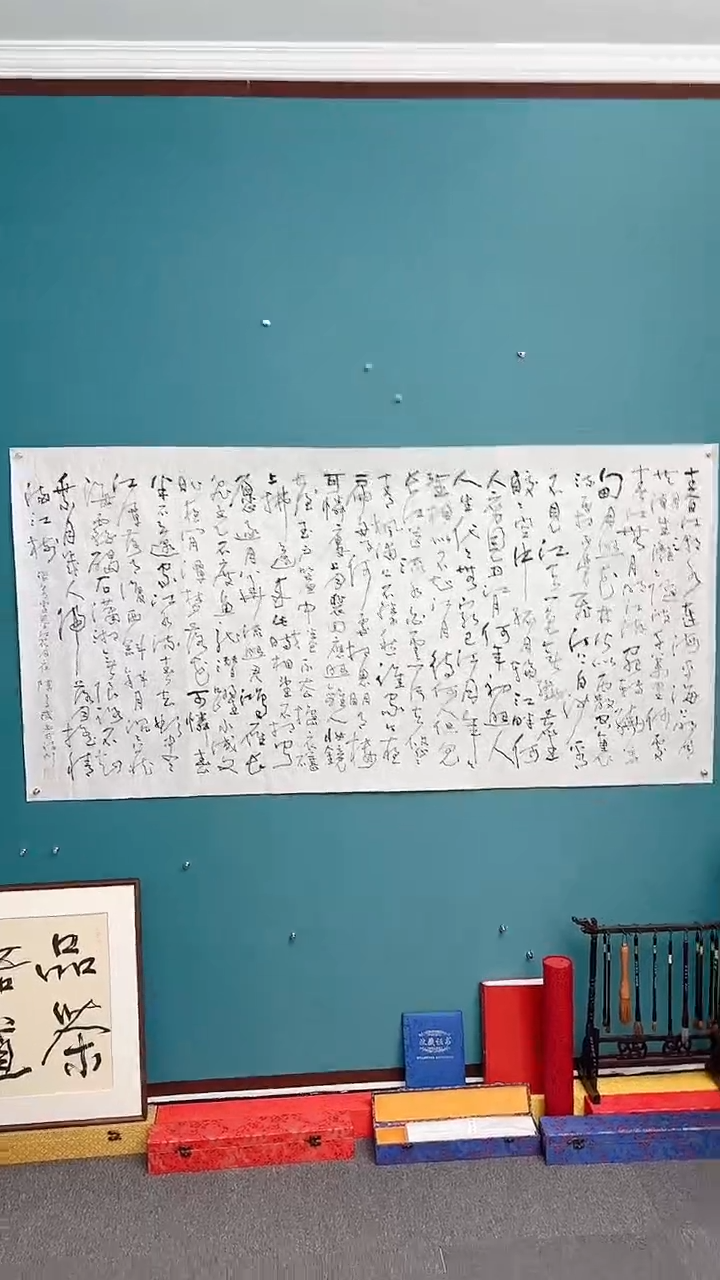 春江潮水连海平海上明
月共潮生滟滟随波千万里何处
春江无月明江流宛转绕芳
甸月照花林皆似霰空里
流霜不觉飞汀上白沙看
不见江天一色无纤尘
皎皎空中孤月轮江畔何
人初见月江月何年初照人
人生代代无穷已江月年年
望相似不知江月待何人但见
长江送流水白云一片去悠悠
青枫浦上不胜愁谁家今夜
扁舟子何处相思明月楼
可怜楼上月裴回应照离人妆镜
台玉户帘中卷不去捣衣砧
上拂还来此时相望不相闻
愿逐月华流照君鸿雁长
飞光不度鱼龙潜跃水成文
昨夜闲潭梦落花可怜春
半不还家江水流春去欲尽
江潭落月复西斜斜月沉沉藏
海雾碣石潇湘无限路不知
乘月几人归落月摇情
满江树
品茶
收藏证书